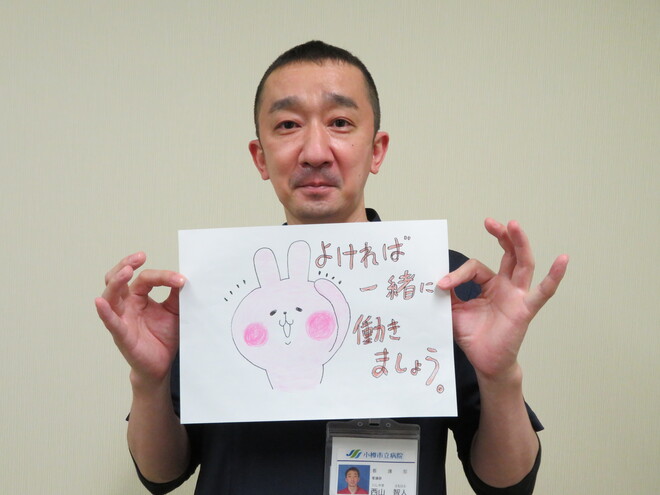 よければ
一緒に
働き
ましょう。
小樽市立病院
看護部
西山 智人